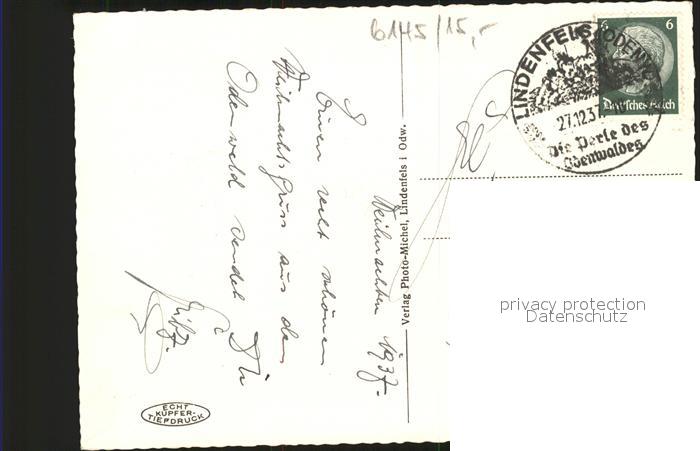 6145/15,-
LINDENFELS
27.12.37
Die Perle des
Odenwaldes
6 6
Deutsches Reich
Weihnachten 1937.
Einen recht schönen
Weihnachts Gruss aus dem
Odenwald sendet Dir
Verlag Photo-Michel, Lindenfels i Odw.
ECHT
KUPFER-
TIEFDRUCK
privacy protection
Datenschutz